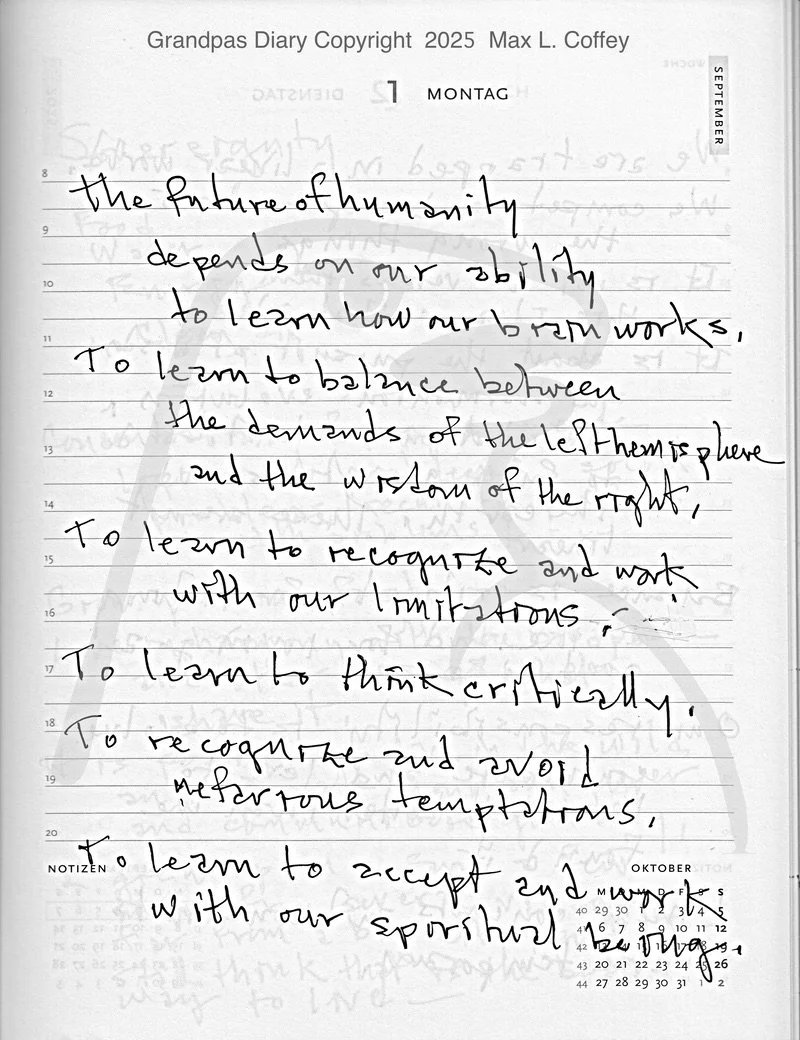 Grandpas Diary Copyright 2025 Max L. Coffey
1 MONTAG
SEPTEMBER
8
the future of humanity
9
depends on our ability
10
to learn how our brain works,
11
To learn to balance between
12
the demands of the left hemisphere
13
and the wisdom of the right,
14
To learn to recognize and work
15
with our limitations,
16
17
To learn to think critically,
18
To recognize and avoid
19
nefarious temptations,
20
To learn to accept and work
with our spiritual being.
NOTIZEN
OKTOBER
M D F S S
40 29 30 1 2 3 4 5
41 6 7 8 9 10 11 12
42 17 18 19
43 20 21 22 23 24 25 26
44 27 28 29 30 31 1 2